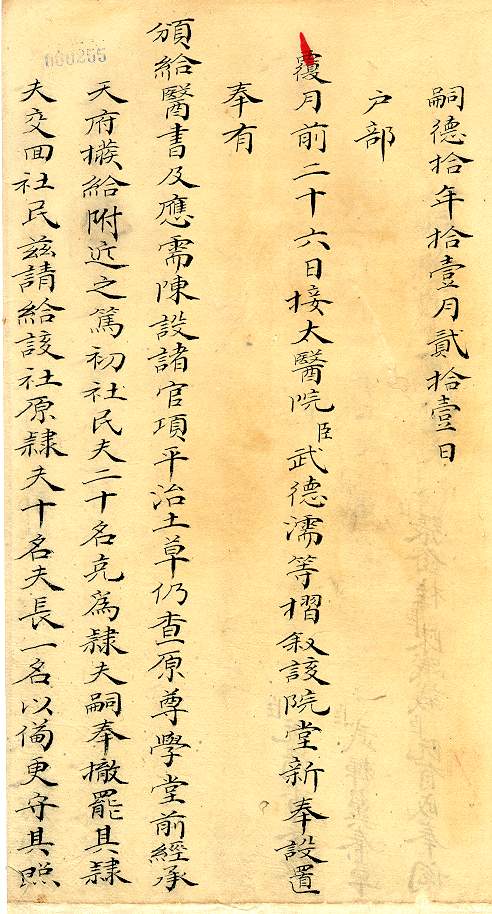 嗣德拾年拾壹月貳拾壹日
戶部
覆月前二十六日接太醫院臣武德濡等摺叙該院堂新奉設置
奉有
頒給醫書及應需陳設諸官項平治土草仍查原尊學堂前經承
天府撥給附近之篤初社民夫二十名充爲隸夫嗣奉撤罷其隸
夫交回社民茲請給該社原隸夫十名夫長一名以僃更守具照
000255